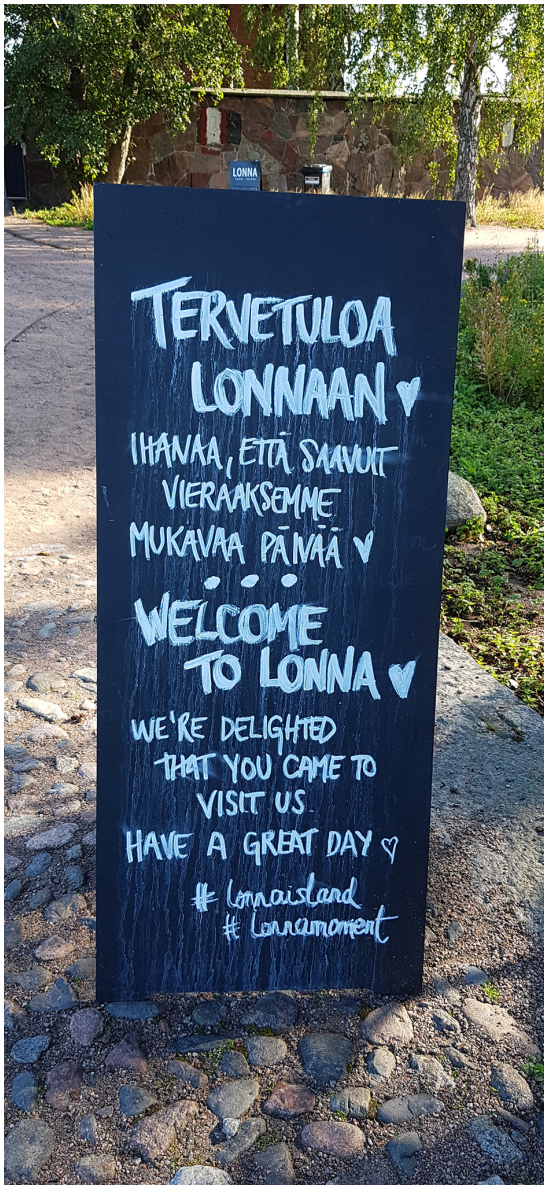 LONNA
TERVETULOA
LONNAAN ♥
IHANAA, ETTÄ SAAVUIT
VIERAAKSEMME
MUKAVAA PÄIVÄÄ ♥
● ● ●
WELCOME
TO LONNA ♥
WE'RE DELIGHTED
THAT YOU CAME TO
VISIT US.
HAVE A GREAT DAY ♡
# lonnaisland
# lonnamoment